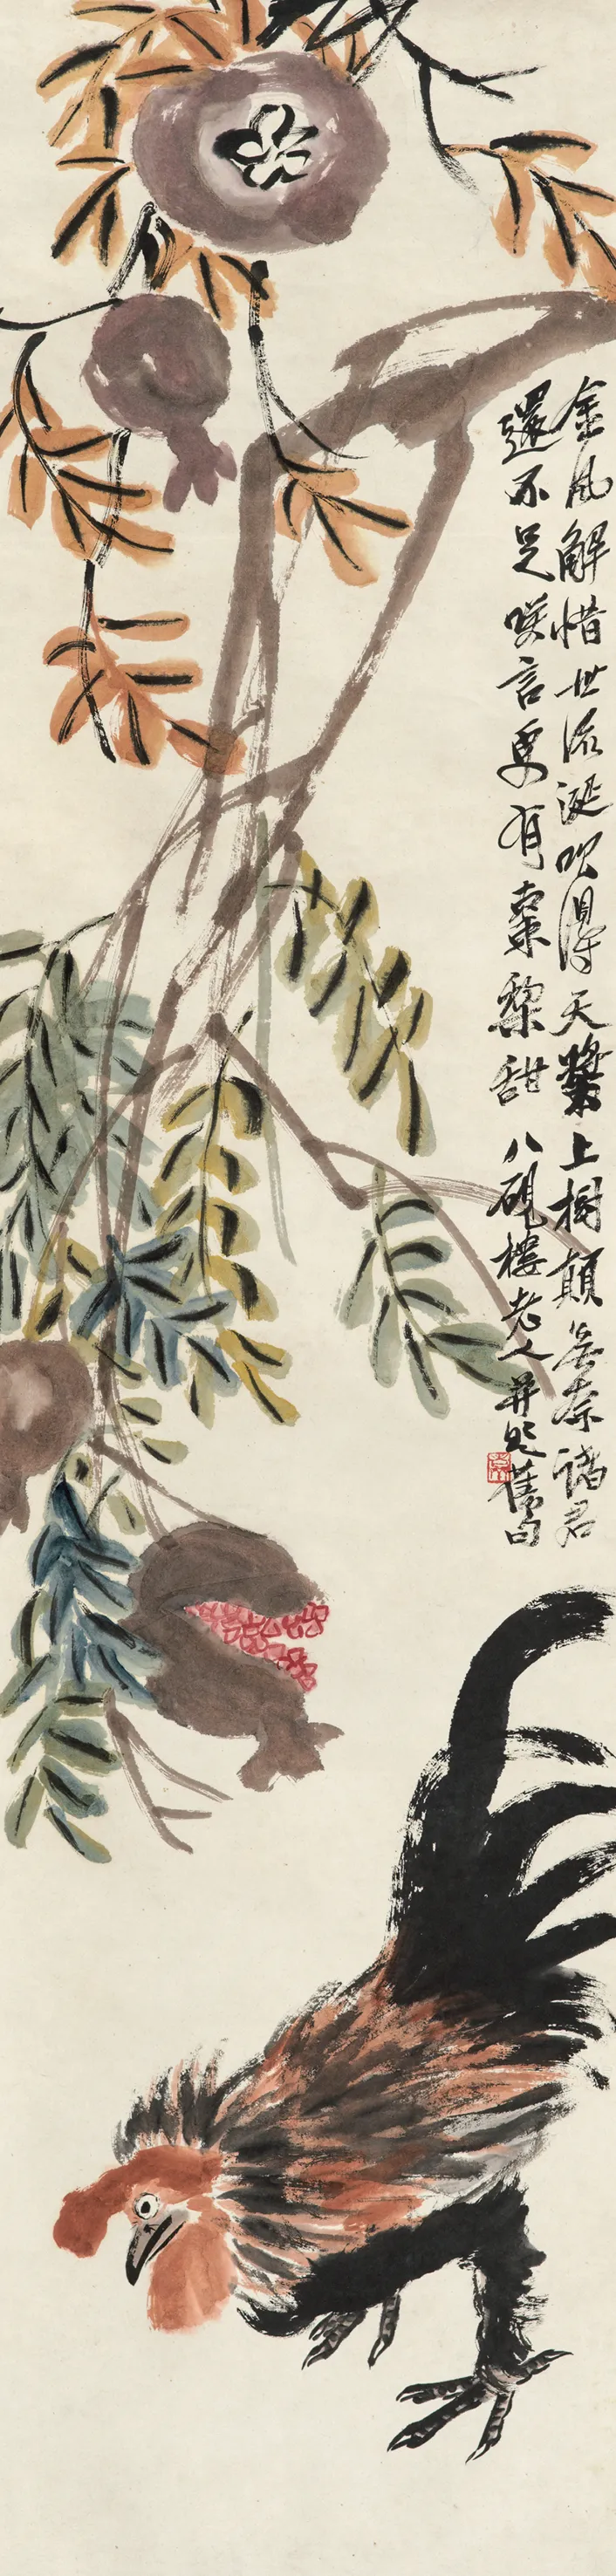 金風解惜世流涎吹得天漿上樹顛無奈諸君
還不足嘆言更有棗黎甜 八硯樓老人並題舊句